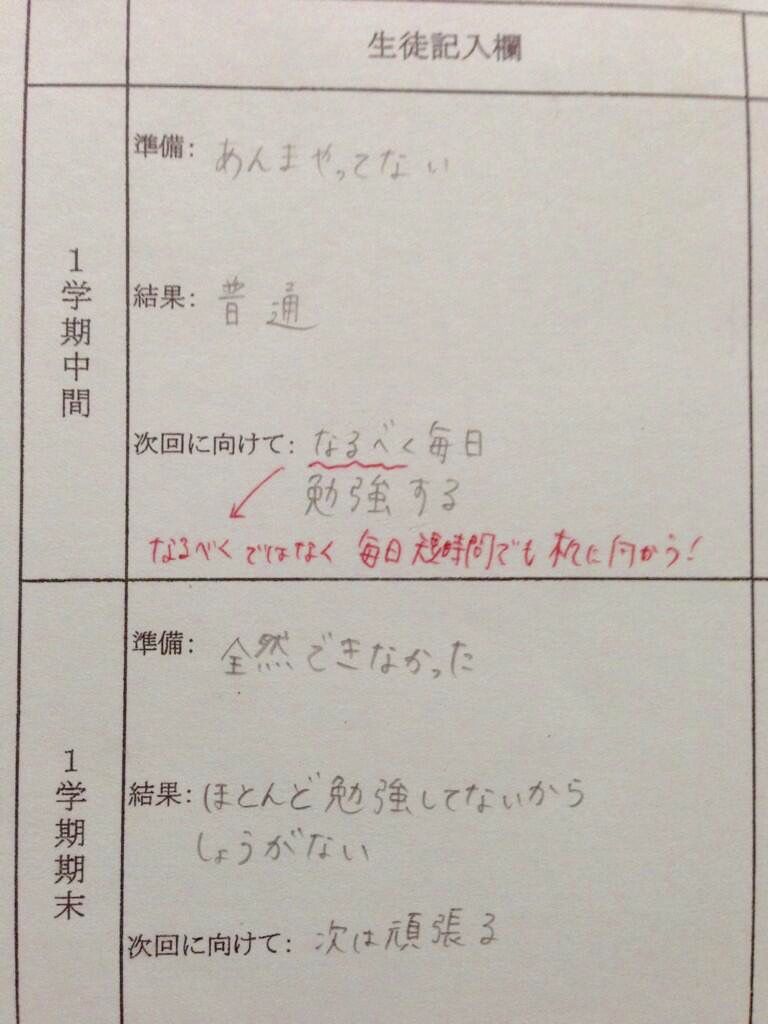 生徒記入欄
1学期中間
準備: あんまやってない
結果: 普通
次回に向けて: なるべく毎日
勉強する
なるべくではなく 毎日短時間でも机に向かう!
1学期期末
準備: 全然できなかった
結果: ほとんど勉強してないから
しょうがない
次回に向けて: 次は頑張る